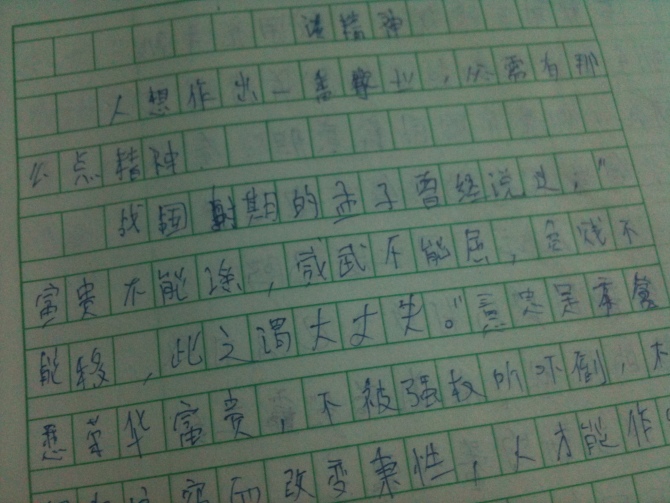 谈精神
人想作出一番事业，必需有那
么点精神
战国时期的孟子曾经说过，"
富贵不能淫，威武不能屈，贫贱不
能移，此之谓大丈夫。"意思是
荣华富贵，不被强权所吓倒，不
而改变秉性，人才能作